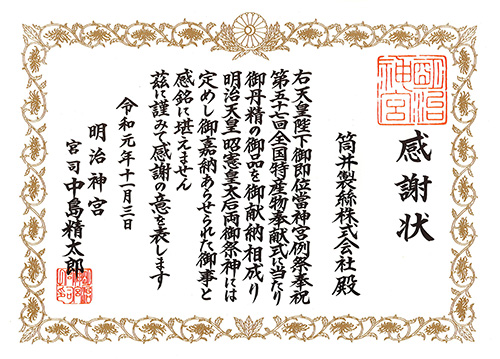 明治
神宮
感謝状
筒井製絲株式会社殿
右天皇陛下御即位當神宮例祭奉祝
第五十七回全国特産物奉献式に当たり
御丹精の御品を御献納相成り
明治天皇昭憲皇太后両御祭神には
定めし御嘉納あらせられた御事と
感銘に堪えません
茲に謹みて感謝の意を表します
令和元年十一月三日
明治神宮
宮司中島精太郎